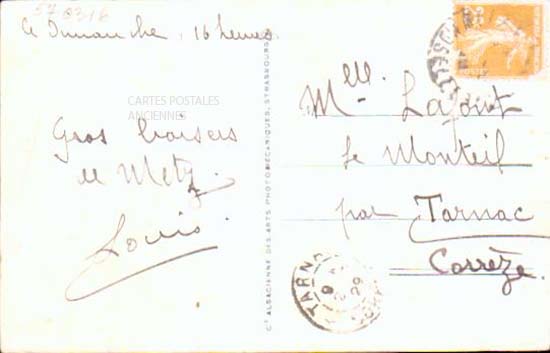 578316
Ce Dimanche, 16 heures
CARTES POSTALES
ANCIENNES
Gros baisers
de Metz.
Louis.
Cie ALSACIENNE DES ARTS PHOTOMÉCANIQUES, STRASBOURG
POSTES
Mlle. Lafont
le Monteil
par Tarnac
Corrèze.
TARNAC